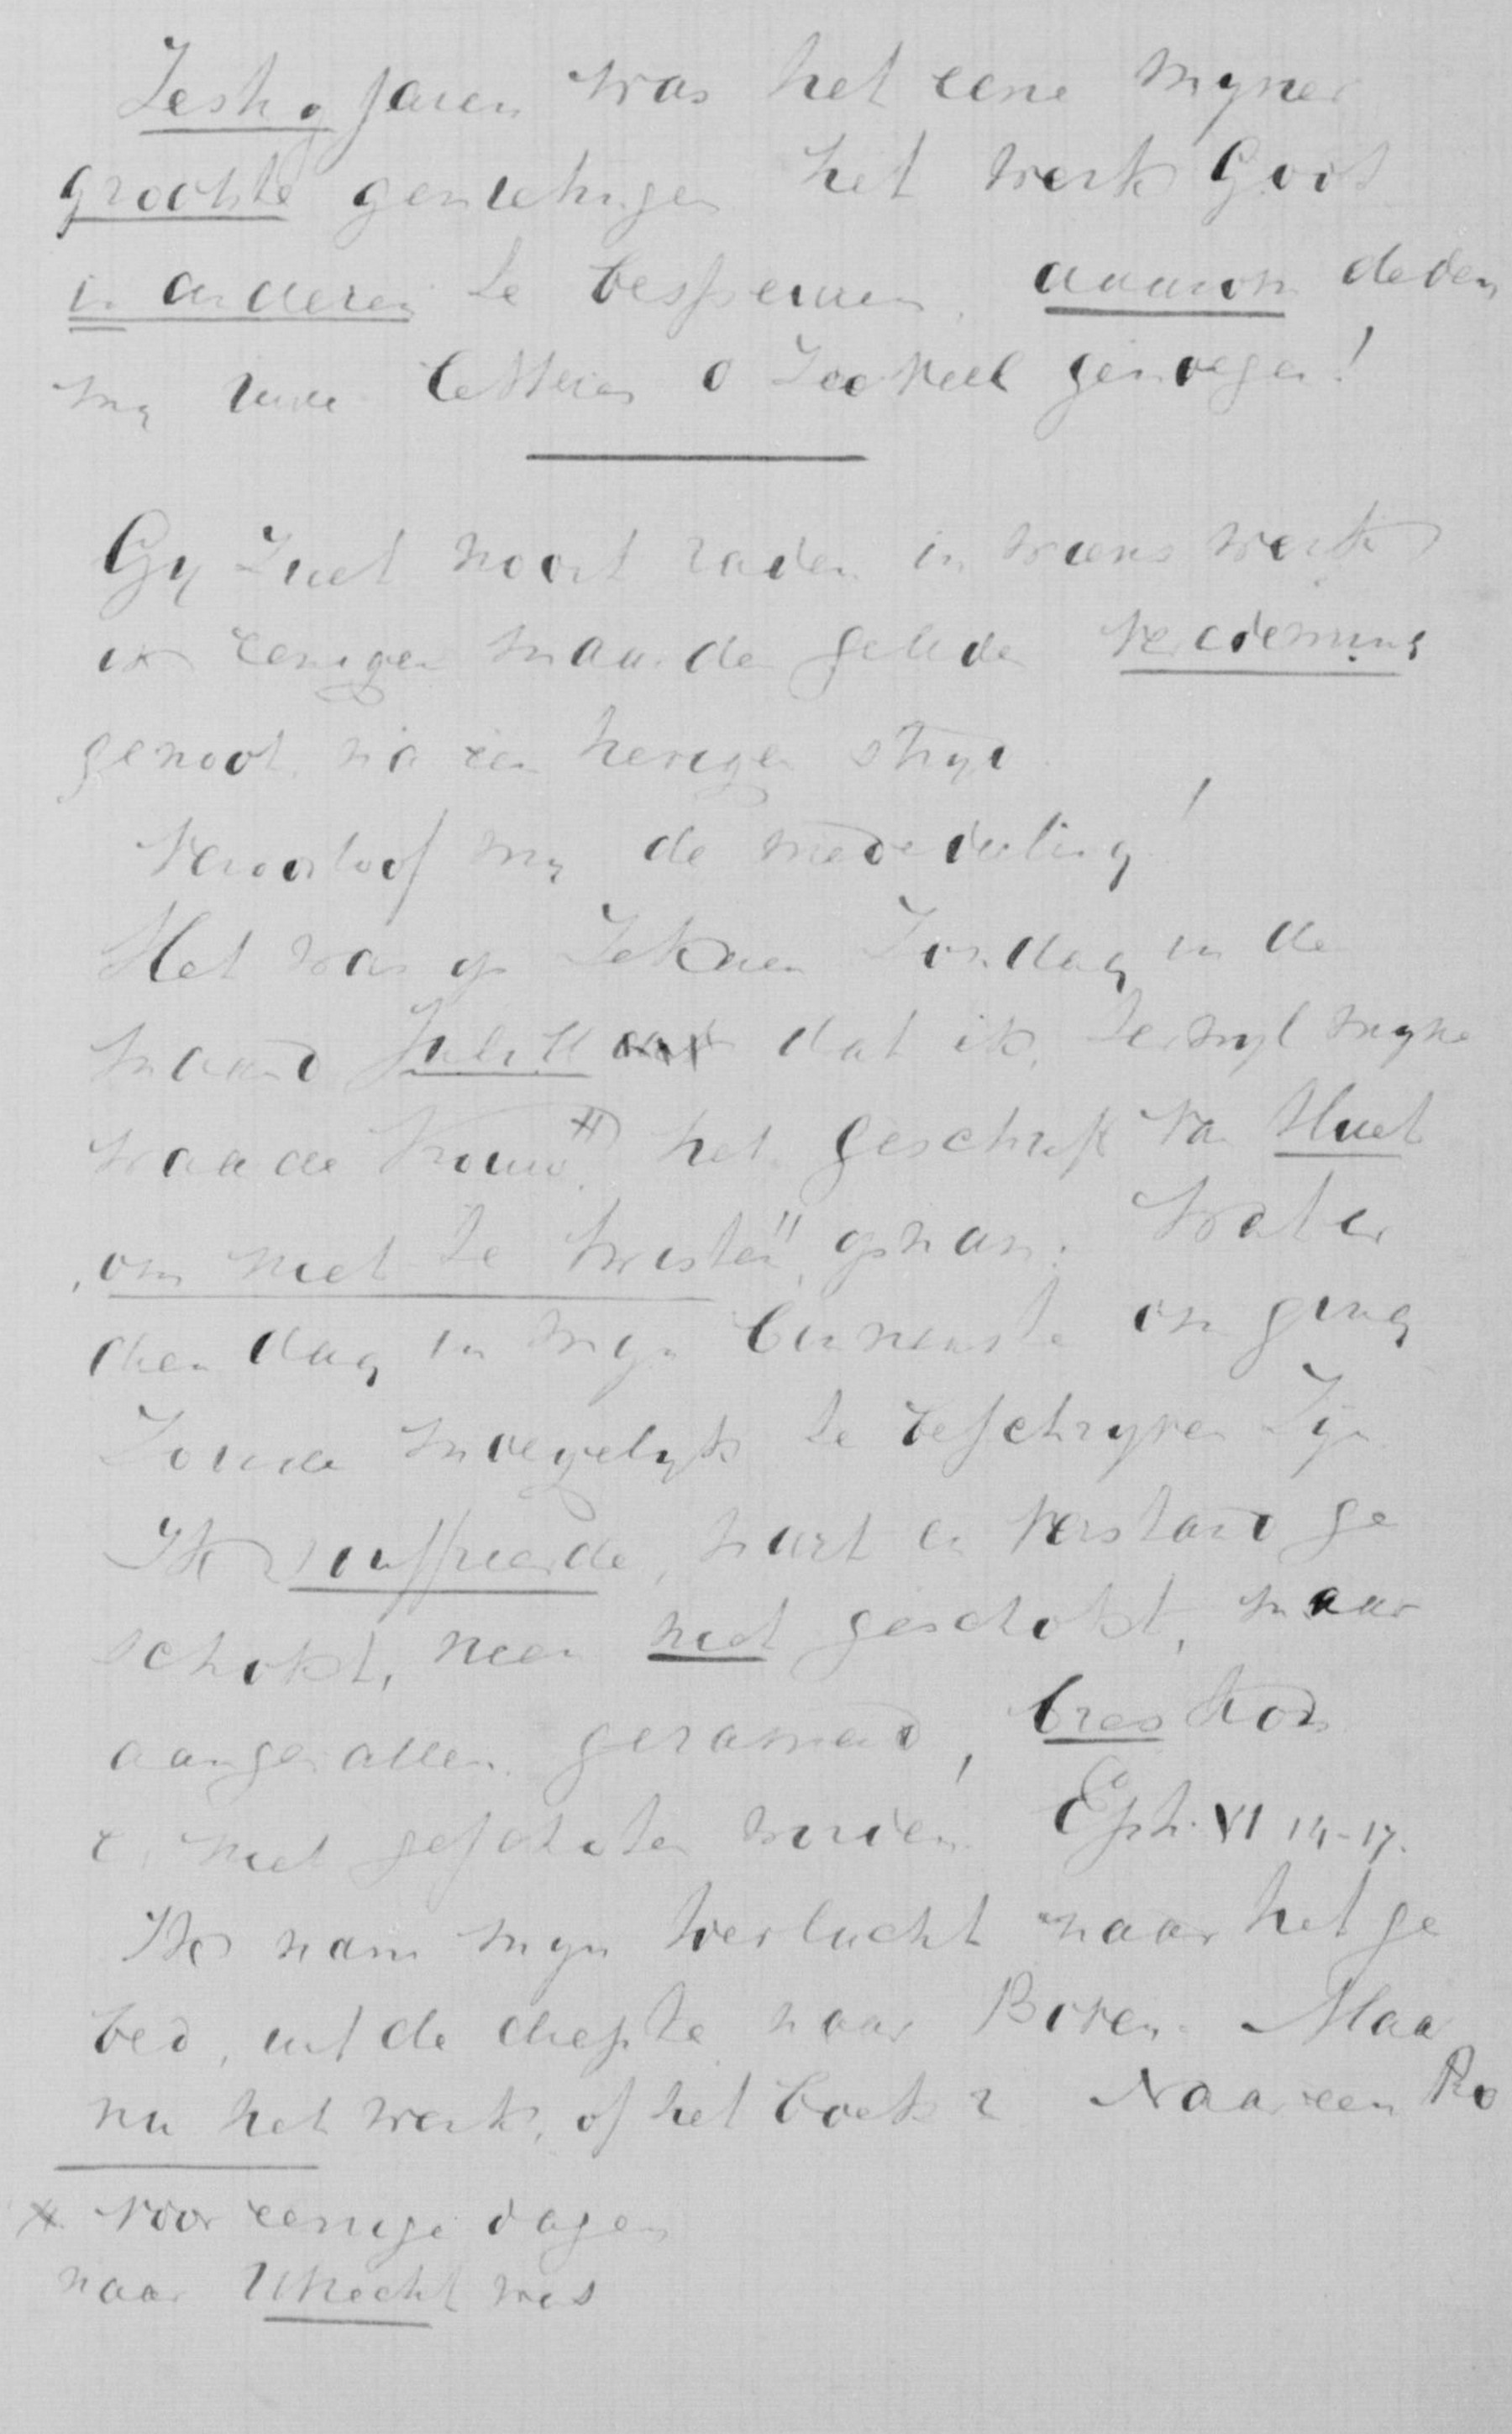 Zestig jaren was het eene mijner
grootste genietingen het werk Gods
in anderen te bespeuren, daarom deden
mij uwe letteren o Zoo veel genoegen!
Gij Zult nooit raden in wiens werk
ik eenigen maanden geleden
genoot na een hevigen strijd
Veroorloof mij de mededeeling!
Het was op Zekeren Zondag in de
maand Juli ll dat ik, terwijl mijne
waarde Vrouw het geschrift van Huet
"om niet te twisten" opnam. Wat er
dien dag in mijn binnenste om ging
Zoude moeyelijk te beschrijven Zijn
Ik souffreerde, hart en verstand ge
schokt, neen niet geschokt, maar
aangevallen. gerameid, bres kon
er niet geschoten worden. Eph. VI 14-17.
Ik nam mijn toevlucht naar het ge
bed, uit de diepte naar Boven. Maar
nu het werk, of het boek? Naar een Ro
* voor eenige dagen
naar Utrecht was